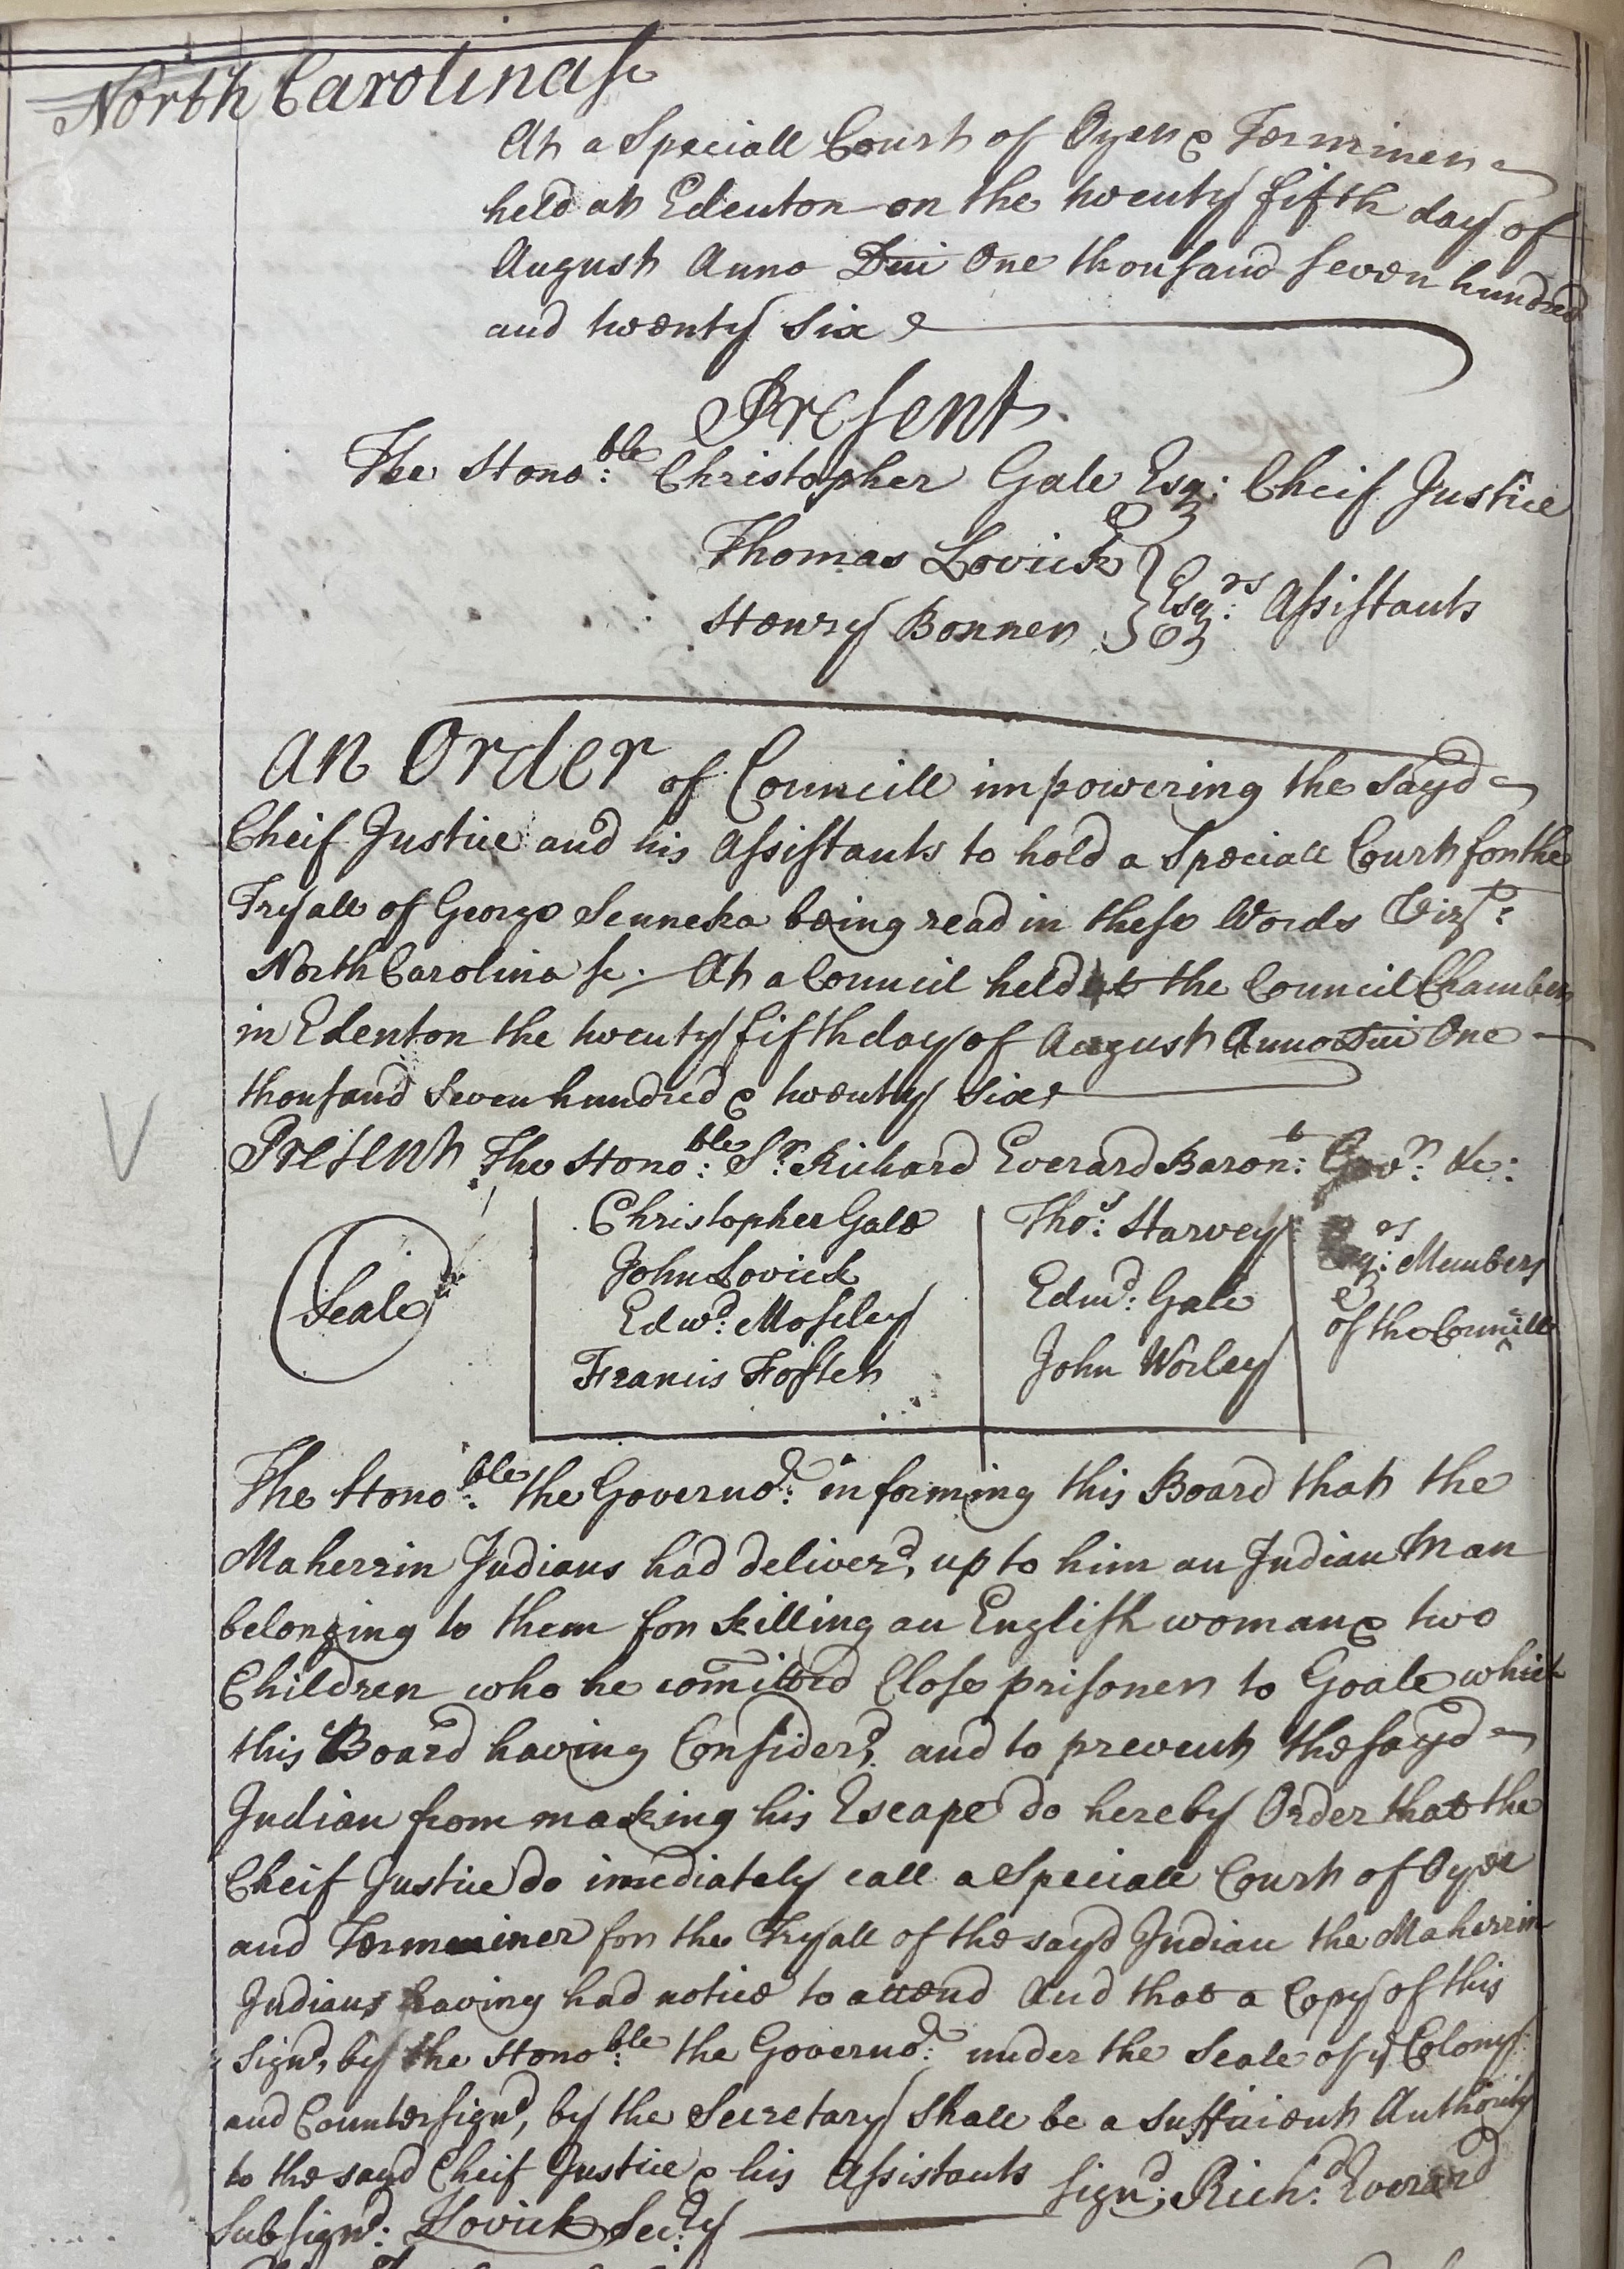 North Carolina sc
At a Speciall Court of Oyer & Terminer
held at Edenton on the twenty fifth day of
August Anno Dni One thousand seven hundred
and twenty six
Present
The Hono:ble Christopher Gale Esq: Cheif Justice
Thomas Lovick
Henry Bonner } Esq:rs Assistants
An Order of Councill impowering the sayd
Cheif Justice and his Assistants to hold a Speciall Court for the
Tryall of George Senneka being read in these Words Vizt:
North Carolina sc. At a Council held at the Council Chamber
in Edenton the twenty fifth day of August Anno Dni One
thousand Seven hundred & twenty six
Present The Hono:ble Sr. Richard Everard Baron:t Govr: &c:
Christopher Gale
John Lovick
Edwd: Moseley
Francis Foster
Tho:s Harvey
Edmd: Gale
John Worley
Esq:rs Members
of the Councill
Seale
The Hono:ble the Governor: informing this Board that the
Maherrin Indians had deliverd, up to him an Indian Man
belonging to them for killing an English woman & two
Children who he comitted Close prisoner to Goale which
this Board having Considerd, and to prevent the sayd
Indian from making his Escape do hereby Order that the
Cheif Justice do imediately call a Speciall Court of Oyer
and Terminer for the Tryall of the sayd Indian the Maherrin
Indians having had notice to attend And that a Copy of this
Signd, by the Hono:ble the Governor: under the Seale of ye Colony
and Countersignd, by the Secretary shall be a sufficient Authority
to the sayd Cheif Justice & his Assistants Signd; Richd: Everard
Subsignd: J Lovick Sec:ry